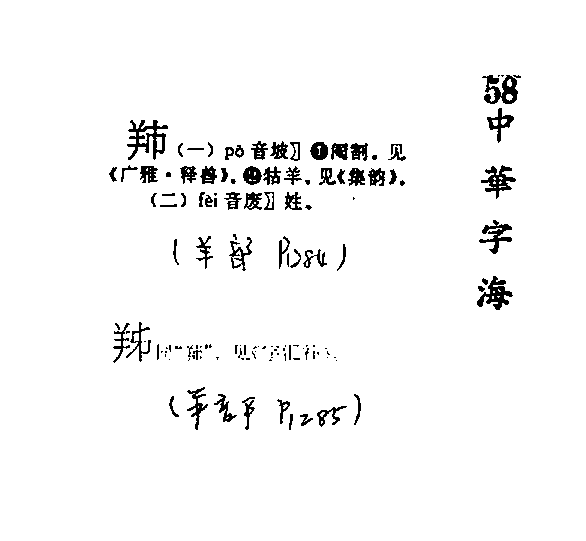 58
中華字海
𦍧(一)pō音坡〗❶阉割。见
《广雅·释兽》。❷牯羊。见《集韵》。
(二)fèi音废〗姓。
(羊部 P1284)
同“ ”。见《字汇补》。
(羊部 P1285)